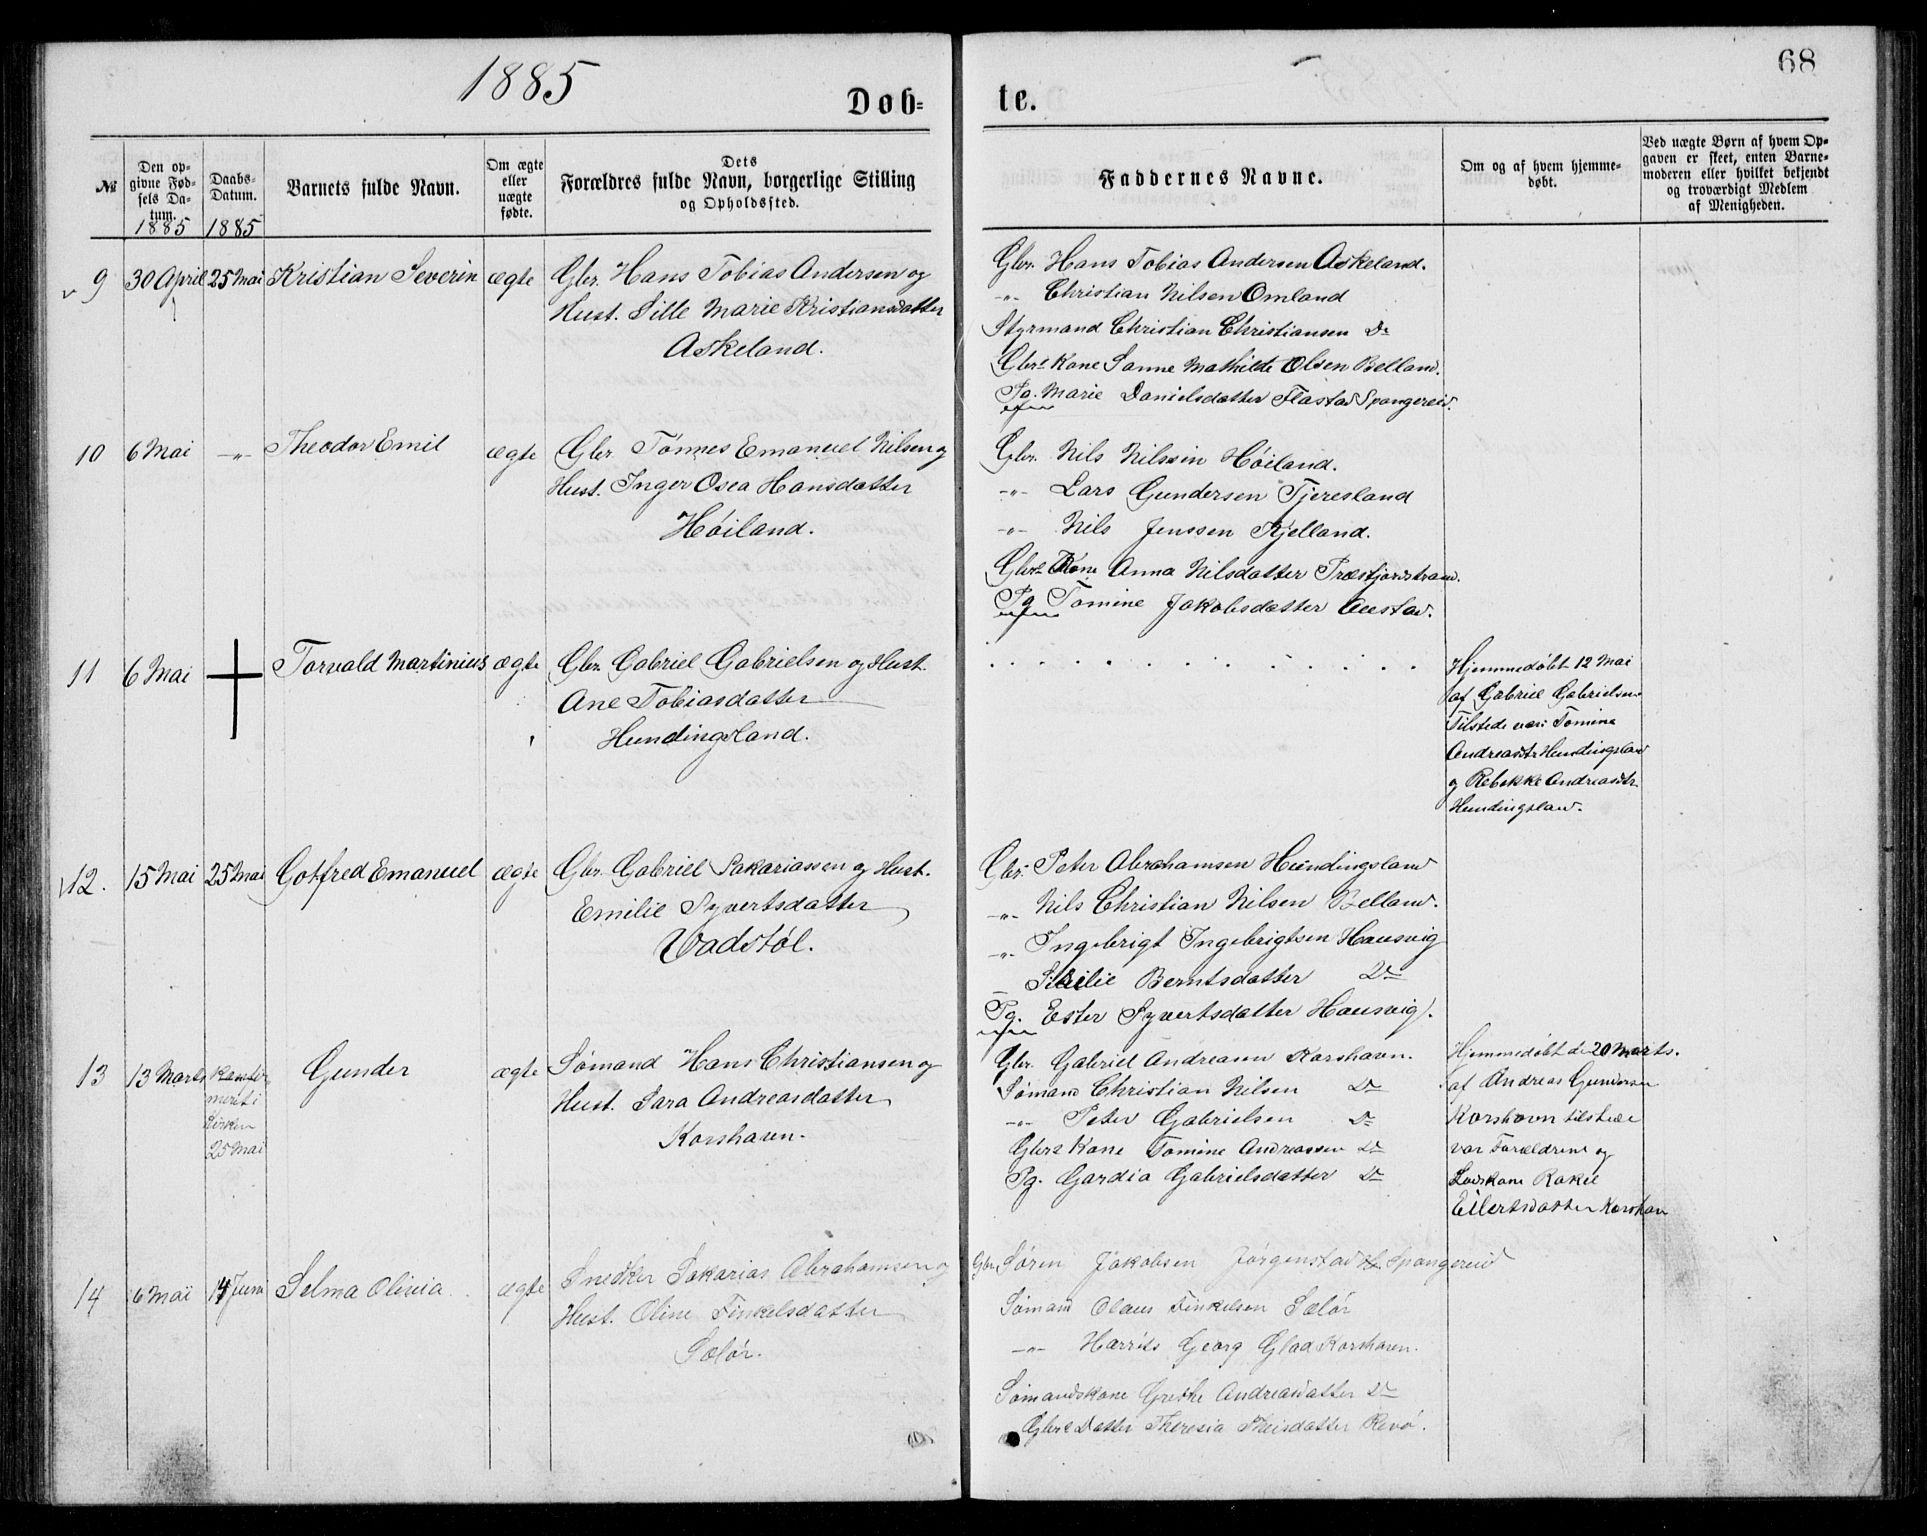 1885
68
Døb-
te.
№
Den opgivne Fødsels Datum.
1885
Daabs-Datum.
1885
Barnets fulde Navn.
Om ægte eller uægte fødte.
Dets
Forældres fulde Navn, borgerlige Stilling
og Opholdssted.
Faddernes Navne.
Om og af hvem hjemme-
døbt.
Ved uægte Børn af hvem Op-
gaven er skeet, enten Barne-
moderen eller hvilket bekjendt
og troværdigt Medlem
af Menigheden.
9 30 April 25 Mai Kristian Severin ægte Gbr. Hans Tobias Andersen og
Hust. Sille Marie Kristiansdatter
Askeland.
Gbr. Hans Tobias Andersen Askeland.
-"- Christian Nilsen Omland
Styrmand Christian Christiansen Do
Gbrs Kone Sanne Mathilde Olsen Belland.
Pg. Marie Danielsdatter Flastad Spangereid.
10 6 Mai -"- Theodor Emil ægte Gbr. Tønnes Emanuel Nilsen og
Hust. Inger Osea Hansdatter
Höiland.
Gbr. Nils Nilssen Höiland.
-"- Lars Gundersen Tjeresland
-"- Nils Jenssen Kjelland.
Gbrs Kone Anna Nilsdatter Træsfjordstrand.
Pg Tomine Jakobsdatter Austad.
11 6 Mai Torvald Martinius ægte Gbr. Gabriel Gabrielsen og Hust.
Ane Tobiasdatter
Hundingsland.
Hjemmedøbt 12 Mai
af Gabriel Gabrielsen
Tilstede var: Tomine
Andreasdtr Hundingsland
og Rebekke Andreasdtr
Hundingsland.
12. 15 Mai 25 Mai Gotfred Emanuel ægte Gbr. Gabriel Sakariassen og Hust.
Emilie Syvertsdatter
Vadstøl.
Gbr. Peter Abrahamsen Hundingsland
-"- Nils Christian Nilsen Belland.
-"- Ingebrigt Ingebrigtsen Hausvig
Berntsdatter Do
Pg. Ester Syvertsdatter Hausvig.
13 13 Marts
i
Kirken
25 Mai
Gunder ægte Sømand Hans Christiansen og
Hust. Sara Andreasdatter
Korshavn.
Gbr. Gabriel Andreasen Korshavn.
Sømand Christian Nilsen Do
-"- Peter Gabrielsen Do
Gbrs Kone Tomine Andreassen Do
Pg. Gardia Gabrielsdatter Do
Hjemmedøbt de 20 Marts.
af Andreas Gundersen
Korshavn tilstede
var Forældrene og
Loskone Rakel
Eilertsdatter Korshavn
14 6 Mai 14 Juni Selma Olivia ægte Snedker Sakarias Abrahamsen og
Hust. Oline Finkelsdatter
Sælør.
Gbr. Søren Jakobsen Jørgenstad Spangereid
Sømand Olaus Finkelsen Sælør
-"- Harrits Georg Glad Korshavn.
Sømandskone Grethe Andreasdatter Do
Gbrs Datter Theresia Theisdatter Revø.